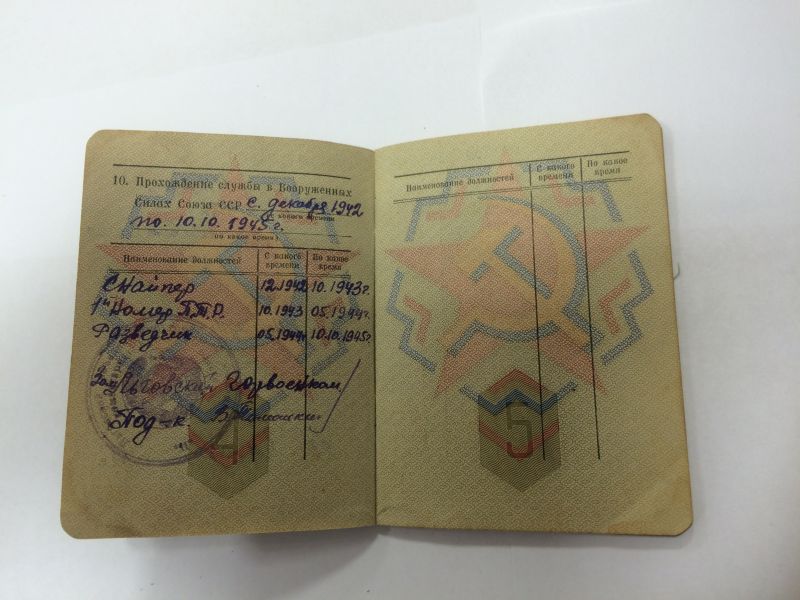 10. Прохождение службы в Вооруженных
Силах Союза ССР с. декабря 1942
(с какого времени
по. 10.10. 1945г.
по какое время)
Наименование должностей С какого времени По какое время
Снайпер 12.1942 10.1943г.
1й Номер П.Т.Р. 10.1943 05.1944г.
Разведчик 05.1944г 10.10.1945г
Зам Льговский Горвоенком
Под-к.
4
Наименование должностей С какого времени По какое время
5